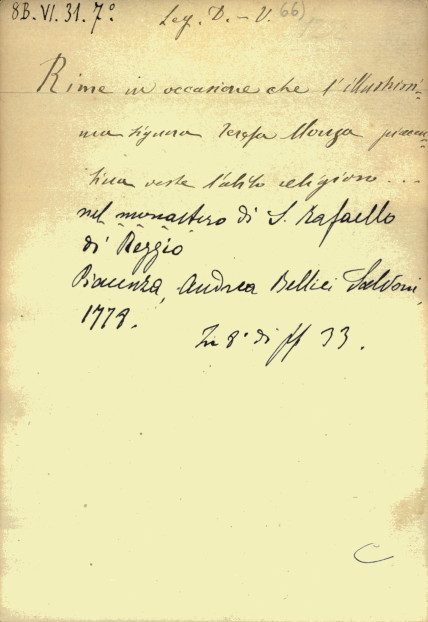 8B. VI. 31. 7º Leg. D. - V. 66)
Rime in occasione che l'illustrissi-
ma signora Teresa Monza piacen-
tina veste l'abito religioso ...
nel monastero di S. Rafaello
di Reggio
Piacenza, Andrea Bellici Salvoni,
1778.
In 8º di ff 33.
C